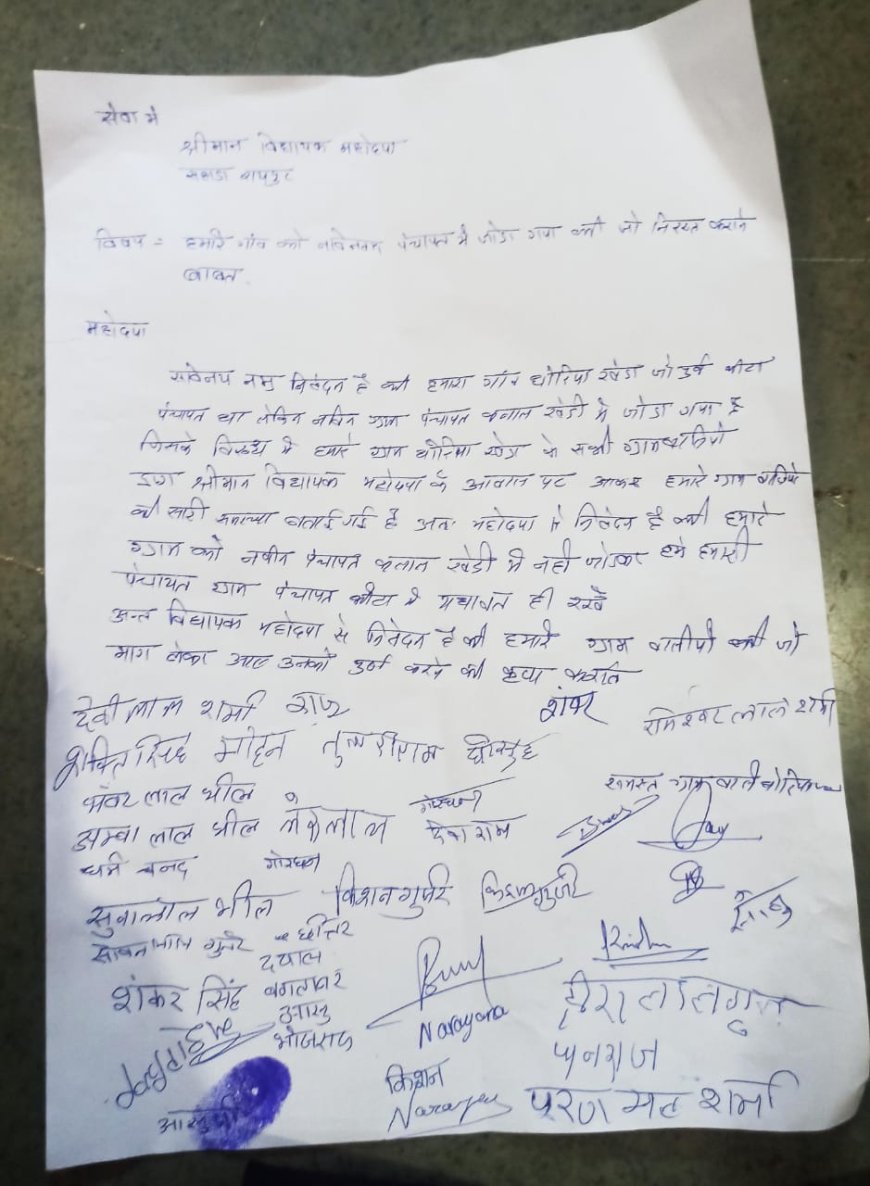 सेवा में
श्रीमान विधायक महोदया
सहाडा रायपुर
विषय = हमारे गांव को नवीनतम पंचायत में जोडा गया की जो निरस्त कराने
बाबत
महोदया
सविनय नम्र निवेदन है की हमारा गांव थोरिया खेडा जो पुर्व
पंचायत था लेकिन नविन ग्राम पंचायत कलाल खेडी में जोडा गया है
जिसके विरूध में हमारे ग्राम थोरिया खेडा के सभी ग्रामवासियो
द्वारा श्रीमान विधायक महोदया के आवास पर आकर हमारे ग्राम वासियो
की सारी समस्या बताई गई है अतः महोदया से निवेदन है की हमारे
ग्राम को नवीन पंचायत कलाल खेडी में नही जोडकर हमे हमारी
पंचायत ग्राम पंचायत में यथावत ही रखें
अन्त विधायक महोदया से निवेदन है की हमारे ग्राम वासीयो की जो
माग लेकर आए उनको पुर्ण करने की कृपा करावे
देवी लाल शर्मा शंकर रामेश्वर लाल शर्मा
शक्ति सिंह मोहन तुलसीराम
भंवर लाल भील समस्त ग्राम वासी
अम्बा लाल भील देवा राम
धर्म चन्द गोरधन
सुवालाल भील किशन गुर्जर किशन गुर्जर
सोवन लाल गुर्जर छीतर
दयाल
शंकर सिंह
भोजराज
Narayana
हीरा लाल
धनराज
किशन
Narayan
पूरण मल शर्मा